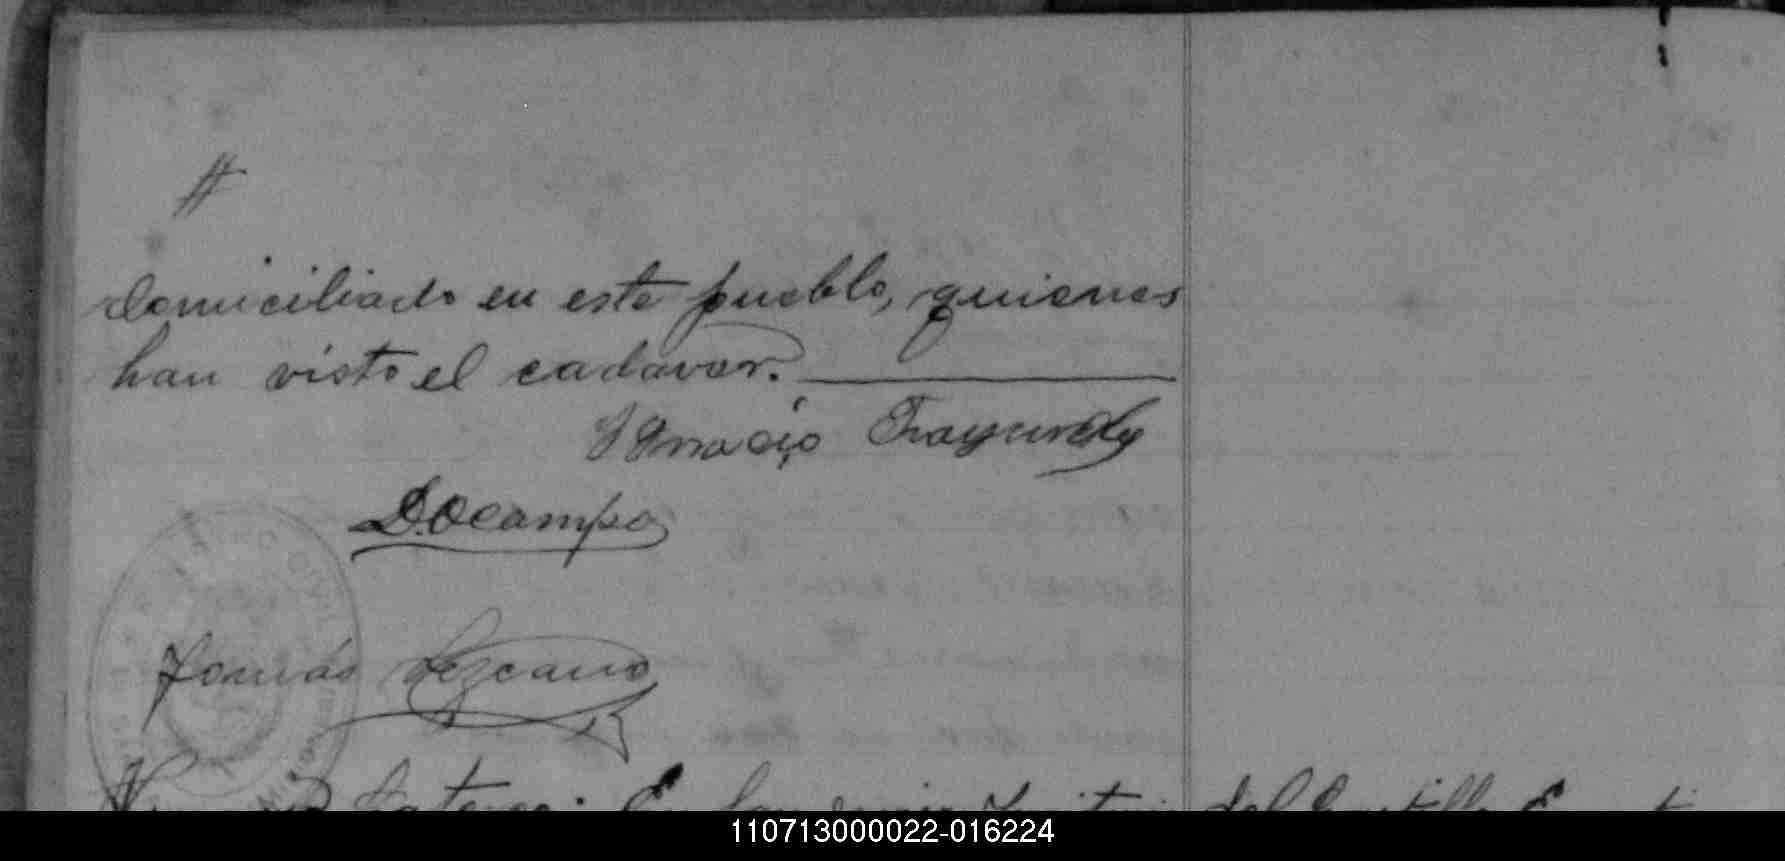 #
domiciliado en este pueblo, quienes
han visto el cadaver.
Ygnacio
D. Ocampo
Tomás Lezcano
catorce: En
110713000022-016224